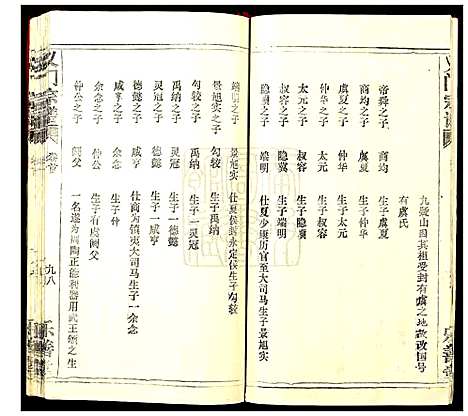 九疑山因其祖受封有虞之地故改國号
有虞氏
帝舜之子 商均 生子虞夏
商均之子 虞夏 生子仲华
虞夏之子 仲华 生子太元
仲华之子 太元 生子叔容
太元之子 叔容 生子隐冀
叔容之子 隐冀 生子端明
隐冀之子 端明 仕夏少康历官至大司马生子景旭实
端明之子 景旭实 仕夏侯封永定侯生子勾较
景旭实之子 勾较 生子禹纳
勾较之子 禹纳 生子一灵冠
禹纳之子 灵冠 生子德懿
灵冠之子 德懿 生子一咸亨
德懿之子 咸亨 仕商为镇夷大司马生子一余念
咸亨之子 余念 生子仲
余念之子 仲公 生子阏父
仲公之子 阏父 一名遂为周陶正能利器用武王赖之生
宗谱
卷首
九八
乐善堂